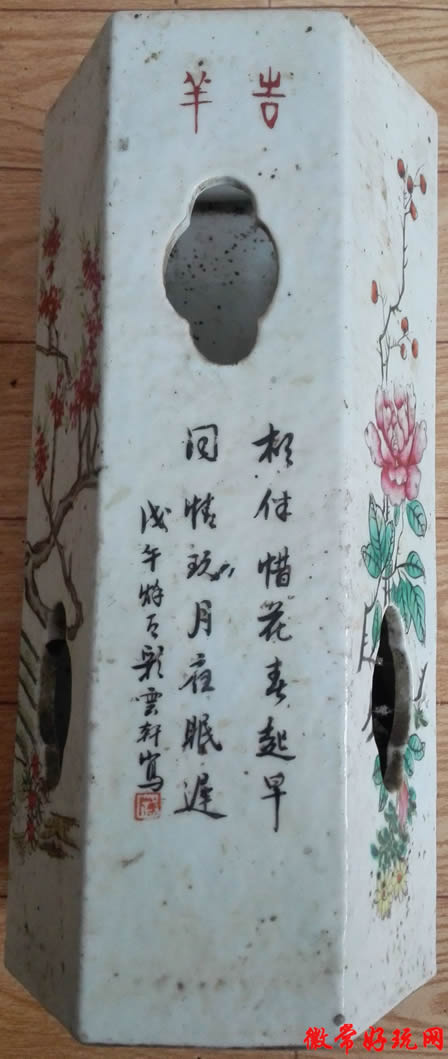 吉羊
相伴惜花春起早
同情玩月夜眠遲
戊午彩雲軒寫
徽常好玩网